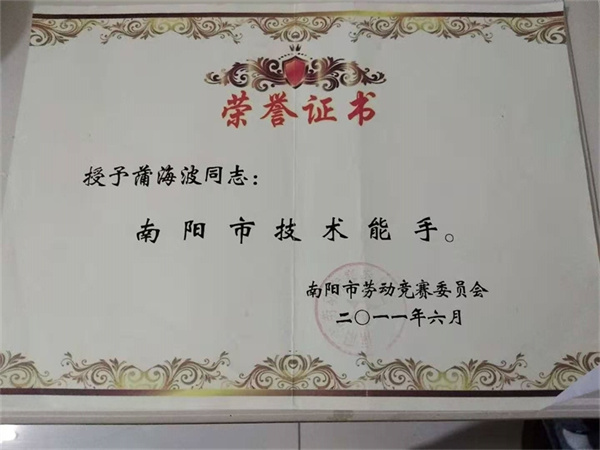 荣誉证书
授予蒲海波同志：
南阳市技术能手。
南阳市劳动竞赛委员会
二〇一一年六月